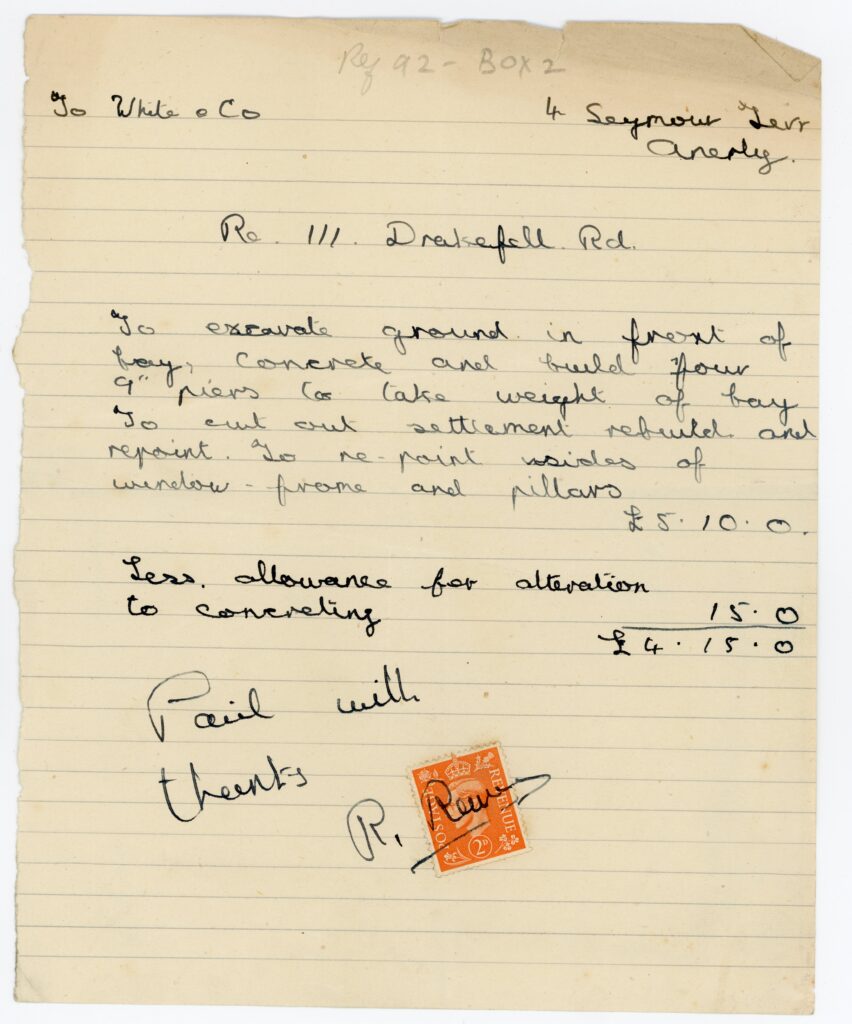 Ref 92 - Box 2
To White & Co
4 Seymour Terr
Anerly.
Re. 111. Drakefell Rd.
To excavate ground in front of
bay, concrete and build four
9" piers to take weight of bay
To cut out settlement rebuild and
repoint. To re-point sides of
window-frame and pillars
£5.10.0.
Less. allowance for alteration
to concreting 15.0
£4.15.0
Paid with
thanks
R.
POSTAGE REVENUE
2D